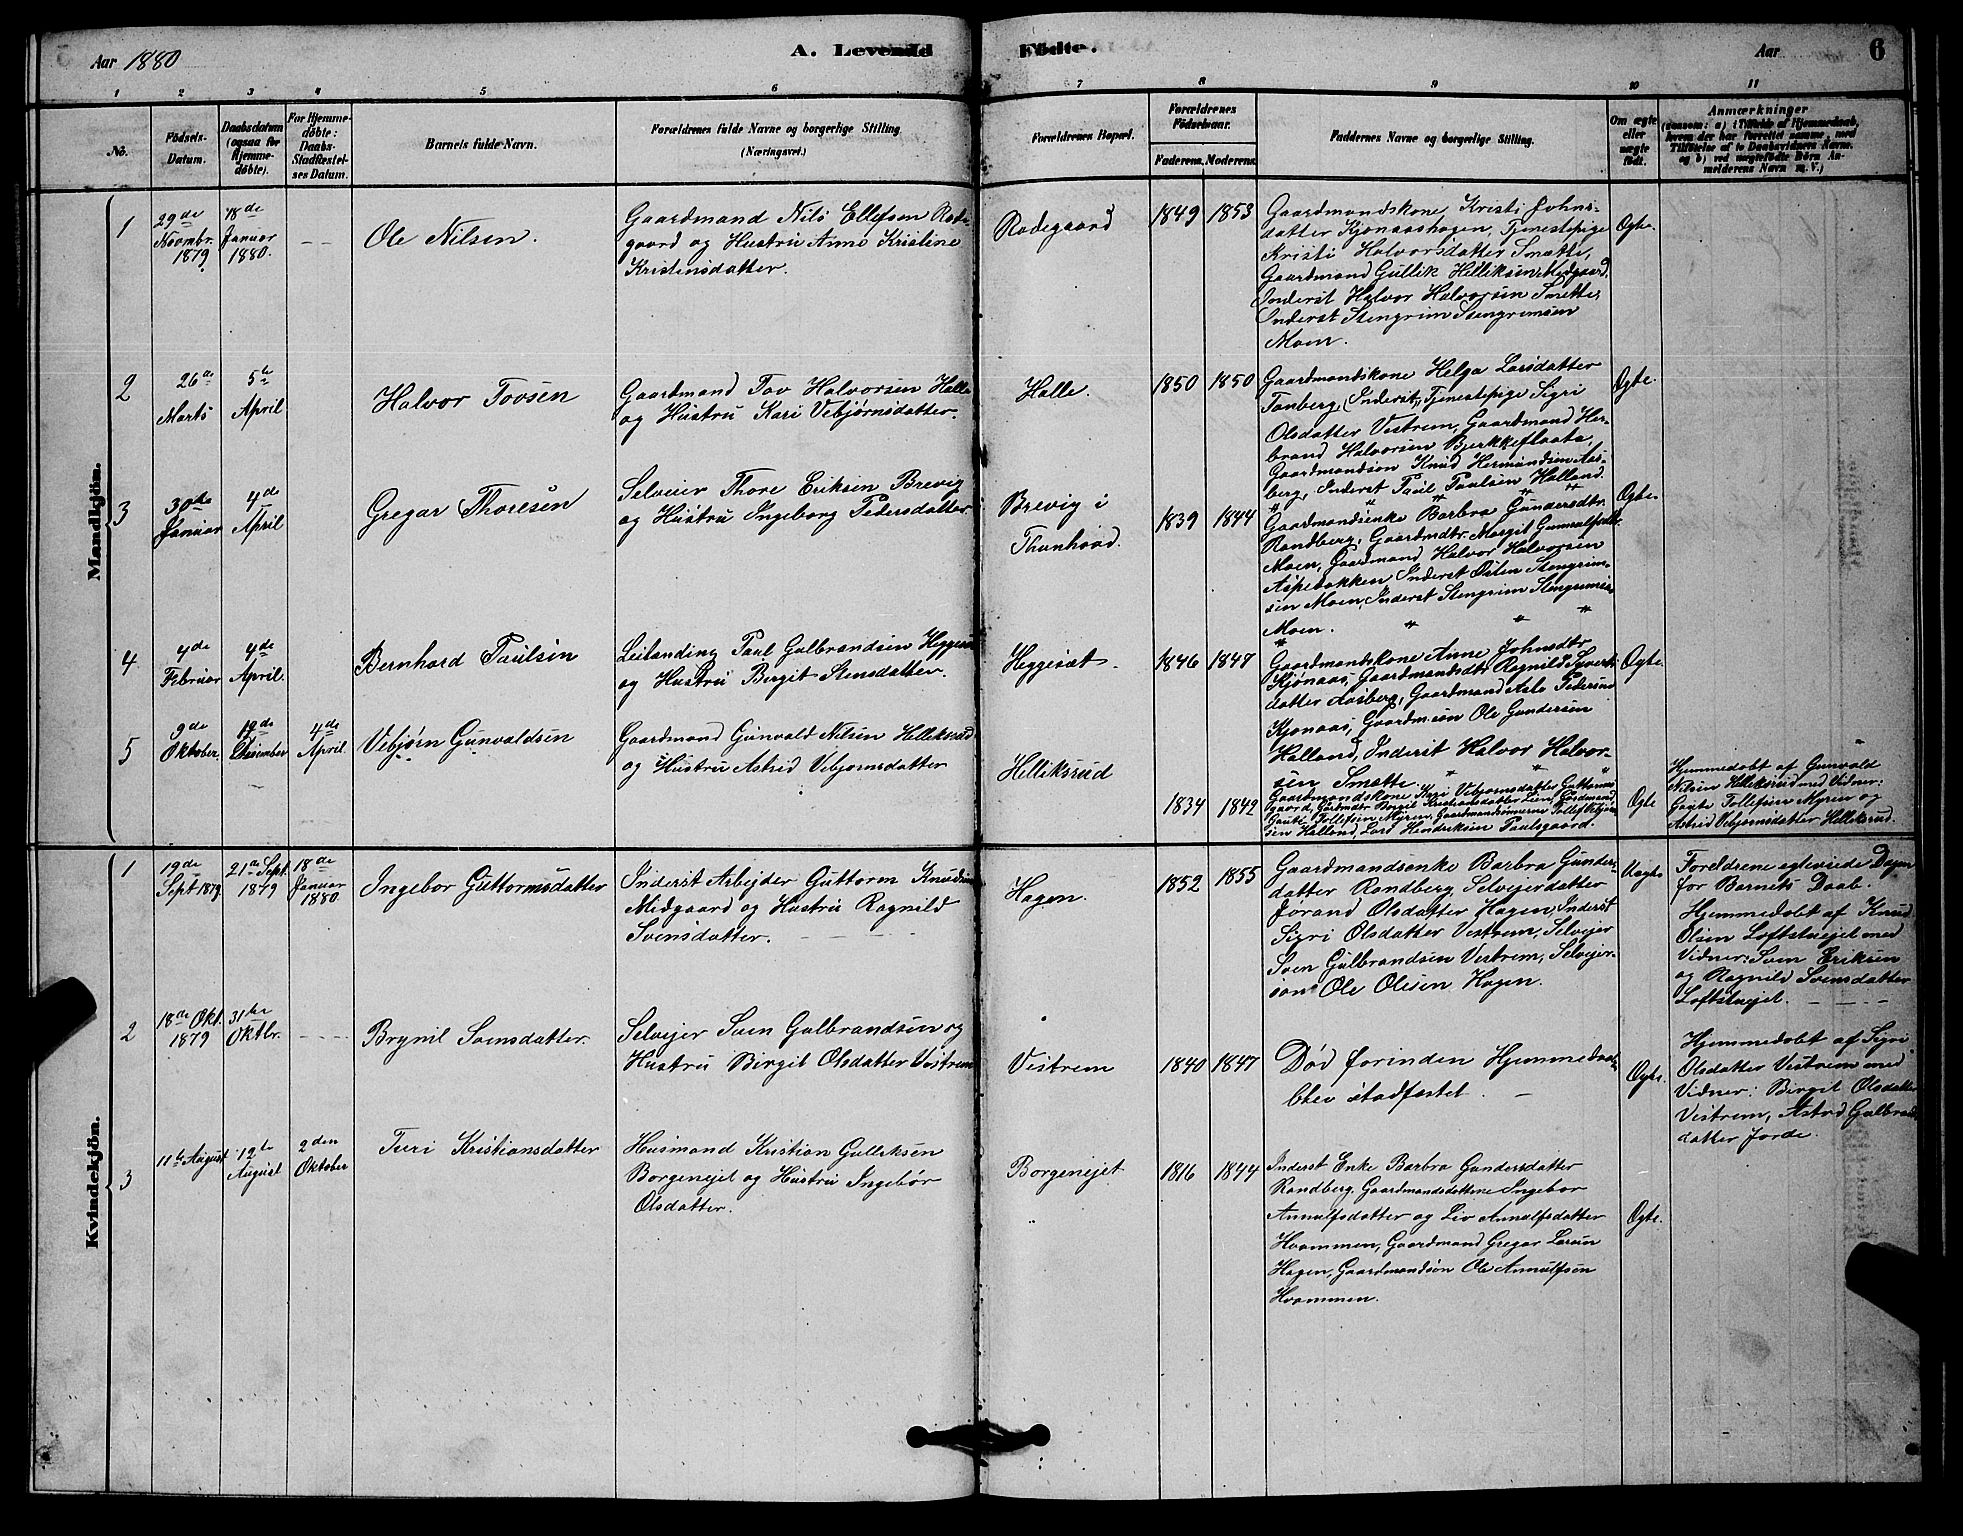 Aar 1880
A. Levende
Födte.
Aar
6
1 2 3 4 5 6 7 8 9 10 11
No.
Födsels-
Datum.
Daabsdatum
(ogsaa for
Hjemme-
døbte).
For Hjemme-
døbte:
Daabs-
Stadfæstel-
ses Datum.
Barnets fulde Navn.
Forældrenes fulde Navne og borgerlige Stilling
(Næringsvei.)
Forældrenes Bopæl.
Forældrenes
Födselsaar.
Faderens. Moderens.
Faddernes Navne og borgerlige Stilling.
Om ægte
eller
uægte
födt.
Anmærkninger
(saasom: a) i Tilfælde af Hjemmedaab,
hvem der har forrettet samme, med
Tilföielse af to Daabsvidners Navne,
og b) ved uægtefödte Börn An-
melderens Navn m. V.)
Mandkjön.
1
29de
Novmbr.
1879
18de
Januar
1880.
Ole Nilsen.
Gaardmand Nils Ellefsen Rode-
gaard og Hustru Anne Kristine
Kristensdatter.
Rodegaard
1849 1853
Gaardmandskone Kristi Johns-
datter Kjonaashagen, Tjenestepige
Kristi Halvorsdatter Smætte,
Gaardmand Gullik Helliksen Medgaard,
Inderst Halvor Halvorsen Smette,
Inderst Stengrim Stengrimsen
Moen.
Ægte.
2
26de
Marts
5te
April
Halvor Tovsen
Gaardmand Tov Halvorsen Halle
og Hustru Kari Vebjörnsdatter.
Halle.
1850 1850
Gaardmandskone Helga Larsdatter
Tonberg, (Inderst) Tjenestepige Sigri
Olsdatter Vestrem, Gaardmand Her-
brand Halvorsen Bjerkkeflaata,
Gaardmandsön Knud Hermandsen Aas-
berg, Inderst Paul Paulsen Halland.
Ægte.
3
30te
Januar
4de
April
Gregar Thoresen
Selveier Thore Eriksen Brevig
og Hustru Ingeborg Pedersdatter
Brevig i
Thunhovd.
1839 1844
Gaardmandsenke Barbra Gundersdtr.
Randberg, Gaardmdtr. Margit Gunnulfsdtr.
Moen, Gaardmand Halvor Halvorsen
Aspebakken, Inderst Östen Stengrim-
sen Moen, Inderst Stengrim Stengrimsen
Moen.
Ægte.
4
4de
Februar
4de
April.
Bernhard Paulsen
Leilanding Paul Gulbrandsen Heggesæt
og Hustru Birgit Stensdatter.
Heggesæt.
1846 1847
Gaardmandskone Anne Johnsdtr.
Kjönaas, Gaardmandsdtr. Ragnild Syverts-
datter Aasberg, Gaardmand Asle Pedersen
Kjonaas, Gaardm.sön Ole Gundersen
Halland, Inderst Halvor Halvor-
sen Smette.
Ægte.
5
9de
Oktober
19de
Desember
4de
April.
Vebjørn Gunvaldsen
Gaardmand Gunvald Nilsen Helliksrud
og Hustru Astrid Vebjornsdatter
Helliksrud
1834 1842
Gaardmandskone Kari Vebjornsdatter Guttorms-
gaard, Gardmdtr. Birgit Kristiansdatter Lien, Gardmand
Gaute Tollefsen Myren, Gaardmandsönnerne Tollef Vebjörn-
sen Halland, Lars Hendriksen Paulsgaard.
Ægte
Hjemmedobt af Gunvald
Nilsen Helliksrud med Vidner:
Gaute Tollefsen Myren og
Astrid Vebjornsdatter Helliksrud.
Kvindekjön.
1
19de
Sept 1879
21de Sept.
1879
18de
Januar
1880.
Ingebor Guttormsdatter
Inderst Arbejder Guttorm Knudsen
Midgaard og Hustru Ragnild
Svensdatter.
Hagen.
1852 1855
Gaardmandsenke Barbra Gunders-
datter Randberg, Selvejerdatter
Jorand Olsdatter Hagen, Inderst
Sigri Olsdatter Vestrem, Selvejer
Sven Gulbrandsen Vestrem, Selvejer-
son Ole Olesen Hagen.
Uægte
Foreldrene egteviede Dagen
for Barnets Daab.
Hjemmedobt af Knud
Olsen Loftstuejet med
Vidner: Sven Eriksen
og Ragnild Svensdatter
Loftstuejet.
2
18de Okt.
1879
31te
Oktbr.
Brynil Svensdatter.
Selvejer Sven Gulbrandsen og
Hustru Birgit Olsdatter Vestrem
Vestrem
1840 1847
Død forinden Hjemmedaaben
blev stadfæstet.
Ægte.
Hjemmedobt af Sigri
Olsdatter Vestrem med
Vidner: Birgit Olsdatter
Vestrem, Astrid Gulbrands-
datter Jorde.
3
11te August
12te
August
2den
Oktober
Turi Kristiansdatter
Husmand Kristian Gulliksen
Borgenejet og Hustru Ingebor
Olsdatter.
Borgenejet
1816 1844
Inderst Enke Barbra Gundersdatter
Randberg. Gaardmandsdöttrene Ingebor
Annulfsdatter og Liv Annulfsdatter
Hvammen, Gaardmand Gregar Larsen
Hagen, Gaardmandsön Ole Annulfsen
Hvammen.
Ægte.